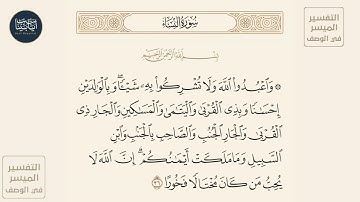 سُورَةُ النِّسَاءِ
التفسير
الميسر
في الوصف
بِسْمِ اللَّهِ الرَّحْمَٰنِ الرَّحِيمِ
۞ وَاعْبُدُوا اللَّهَ وَلَا تُشْرِكُوا بِهِ شَيْئًا ۖ وَبِالْوَالِدَيْنِ
إِحْسَانًا وَبِذِي الْقُرْبَىٰ وَالْيَتَامَىٰ وَالْمَسَاكِينِ وَالْجَارِ ذِي
الْقُرْبَىٰ وَالْجَارِ الْجُنُبِ وَالصَّاحِبِ بِالْجَنبِ وَابْنِ
السَّبِيلِ وَمَا مَلَكَتْ أَيْمَانُكُمْ ۗ إِنَّ اللَّهَ لَا
يُحِبُّ مَن كَانَ مُخْتَالًا فَخُورًا ٣٦
التفسير
الميسر
في الوصف